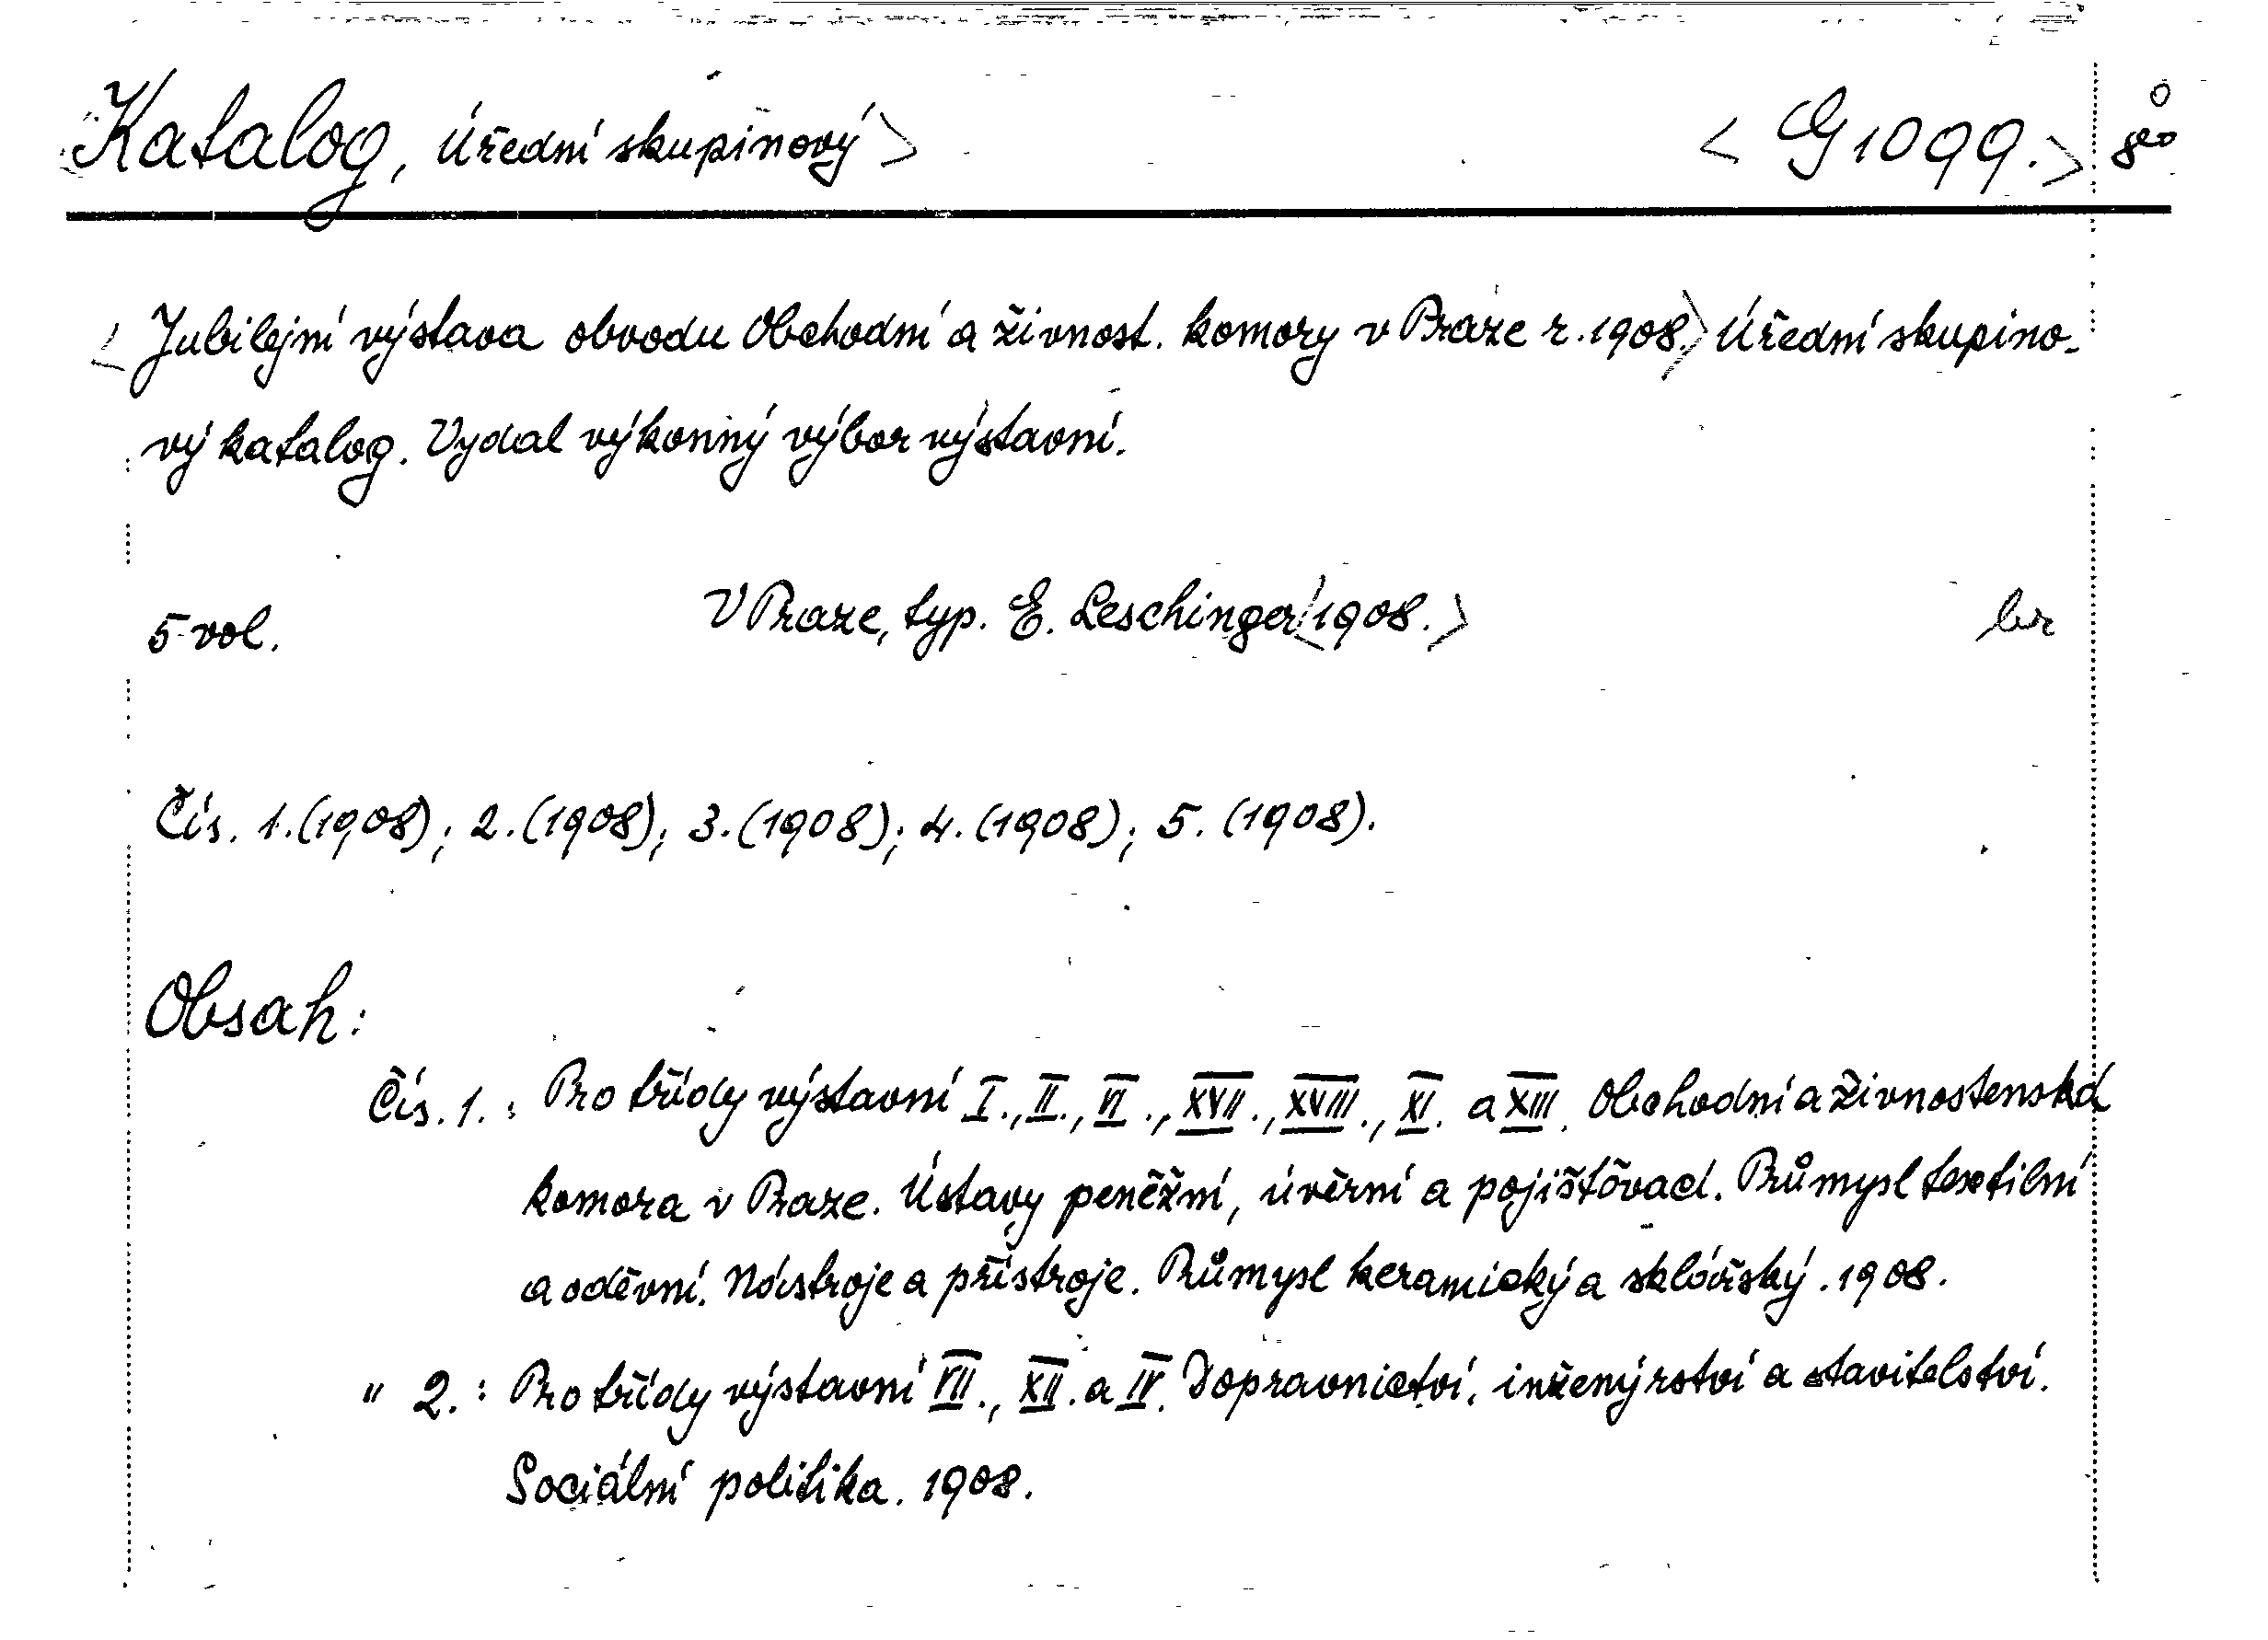 Katalog, úřední skupinový> <G 1099.> 8°
<Jubilejní výstava obvodu Obchodní a živnost. komory v Praze r. 1908.> Úřední skupino-
vý katalog. Vydal výkonný výbor výstavní.
5 vol. V Praze, typ. E. Leschinger <1908.> br
Čís. 1. (1908); 2. (1908); 3. (1908); 4. (1908); 5. (1908).
Obsah:
Čís. 1.: Pro třídy výstavní I., II., VI., XVII., XVIII., XI. a XIII. Obchodní a živnostenská
komora v Praze. Ústavy peněžní, úvěrní a pojišťovací. Průmysl textilní
a oděvní. Nástroje a přístroje. Průmysl keramický a sklářský. 1908.
" 2.: Pro třídy výstavní VII., XII. a IV. Dopravnictví, inženýrství a stavitelství.
Sociální politika. 1908.